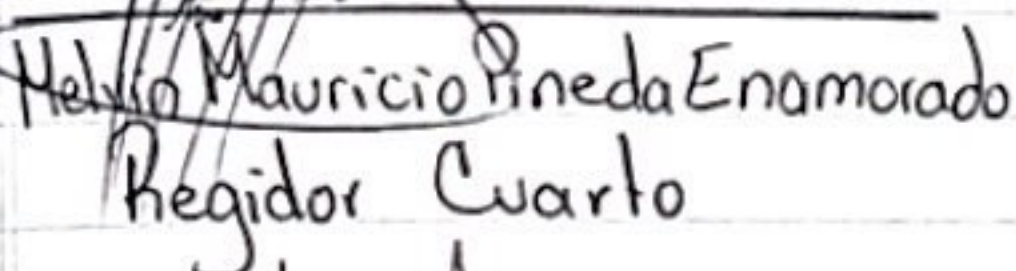 Melvin Mauricio Pineda Enamorado
Regidor Cuarto